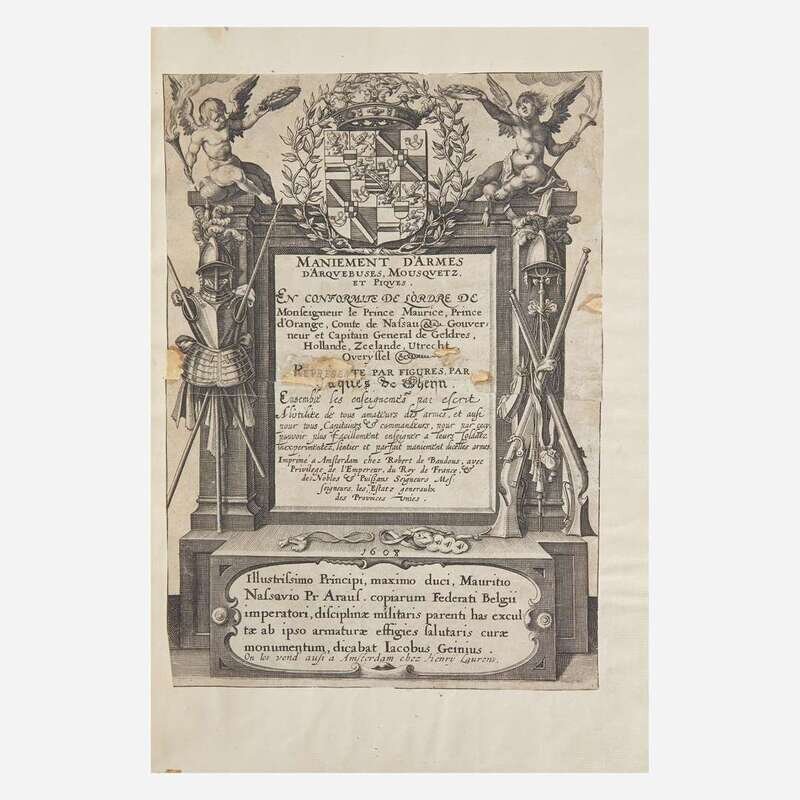 MANIEMENT D'ARMES
D'ARQVEBUSES, MOUSQVETZ.
ET PIQVES.
EN CONFORMITE DE L'ORDRE DE
Monseigneur le Prince Maurice, Prince
d'Orange, Comte de Nassau &c. Gouver=
neur et Capitain General de Geldres,
Hollande, Zeelande, Utrecht,
Overyssel &c.
TE PAR FIGURES, PAR
aques de Gheyn.
Ensemble les enseignemēs par escrit
A l'utilite de tous amateurs des armes, et ausi
pour tous Capitaines & commandeurs, pour par cecy
pouvoir plus facillement enseigner a leurs soldatz
inexperimentez, l'entier et parfait maniement d'icelles armes
Imprimé a Amsterdam chez Robert de Baudous, avec
Privilege de l'Empereur, du Roy de France, &
des Nobles & Puissans Seigneurs Mes
seigneurs, les Estatz generaulx
des Provinces Unies.
1608
Illustrissimo Principi, maximo duci, Mauritio
Nassovio Pr Araus. copiarum Federati Belgii
imperatori, disciplinæ militaris parenti has excul
tæ ab ipso armaturæ effigies salutaris curæ
monumentum, dicabat Iacobus Geinius.
On les vend ausi a Amsterdam chez Henry Laurens.